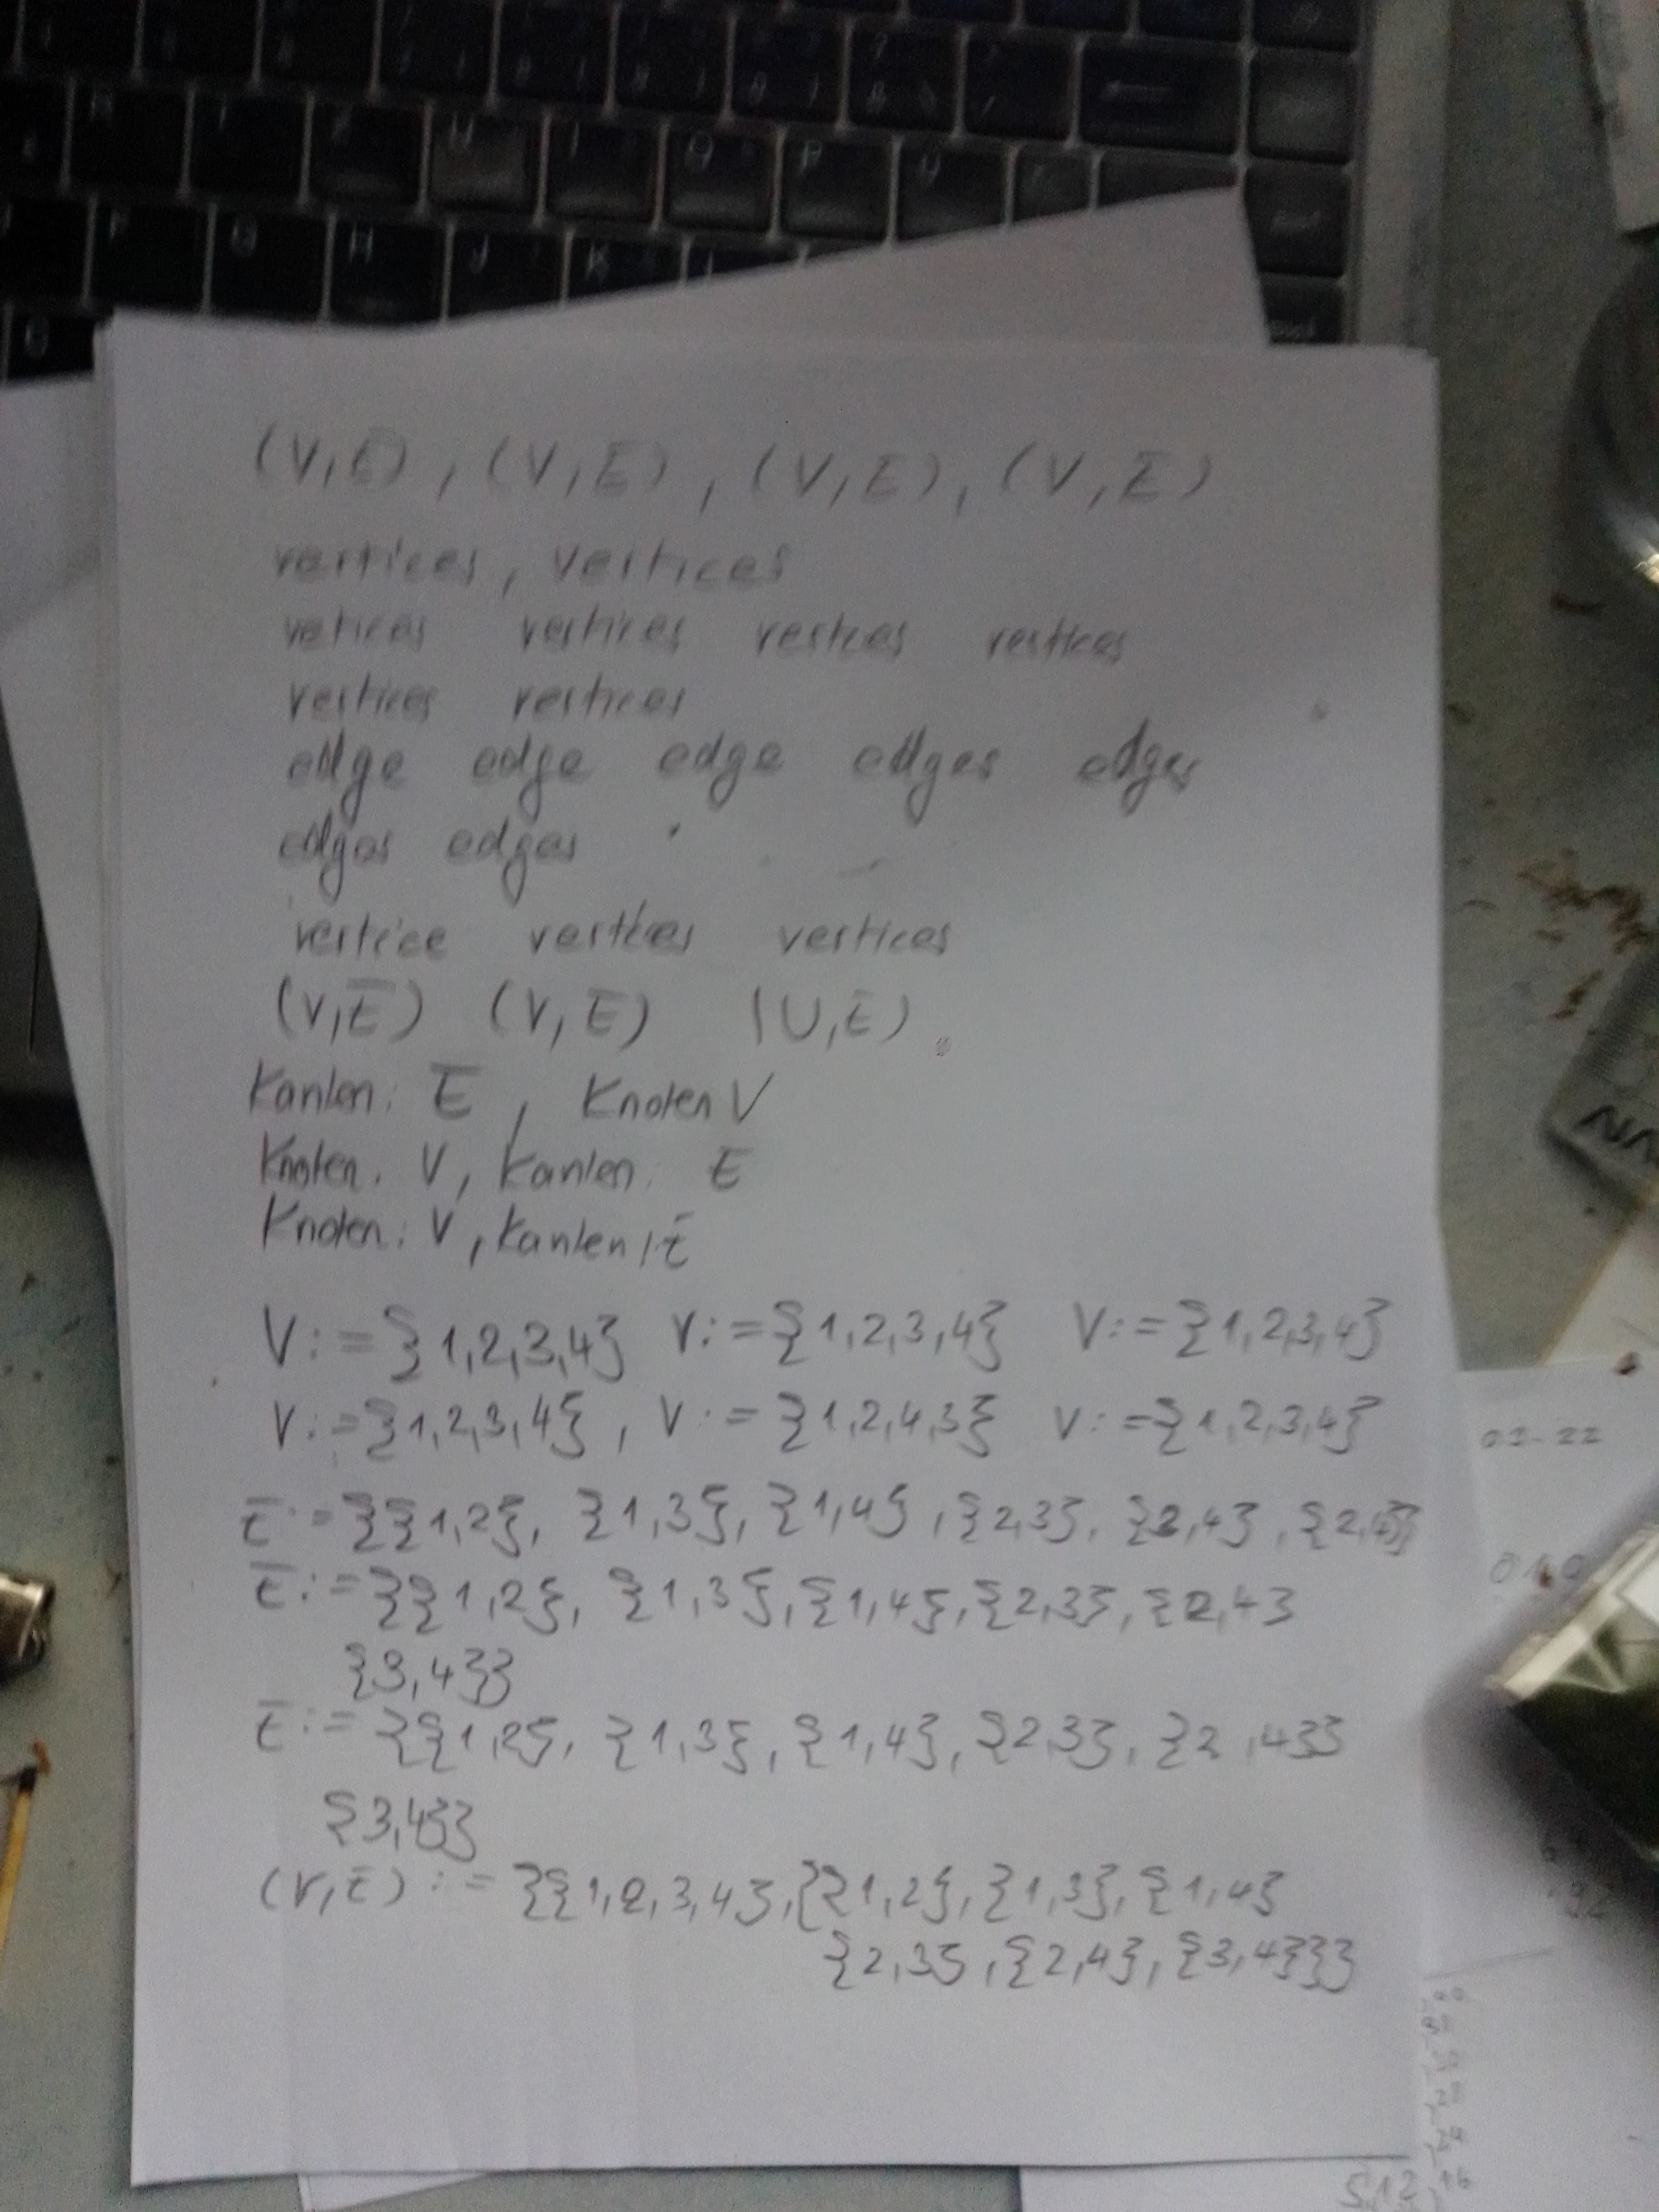 (V,E), (V,E), (V,E), (V,E)
vertices, vertices
vetices vertices vertices vertices
vertices vertices
edge edge edge edges edges
edges edges
vertice vertices vertices
(V,E) (V,E) (U,E)
Kanten: E, Knoten V
Knoten: V, Kanten: E
Knoten: V, Kanten: E
V:={1,2,3,4} V:={1,2,3,4} V:={1,2,3,4}
V:={1,2,3,4}, V:={1,2,4,3} V:={1,2,3,4}
E:={{1,2}, {1,3}, {1,4}, {2,3}, {2,4}, {2,4}}
E:={{1,2}, {1,3}, {1,4}, {2,3}, {2,4}
{3,4}}
E:={{1,2}, {1,3}, {1,4}, {2,3}, {2,4}}
{3,4}}
(V,E):={{1,2,3,4},{{1,2},{1,3},{1,4}
{2,3},{2,4},{3,4}}}